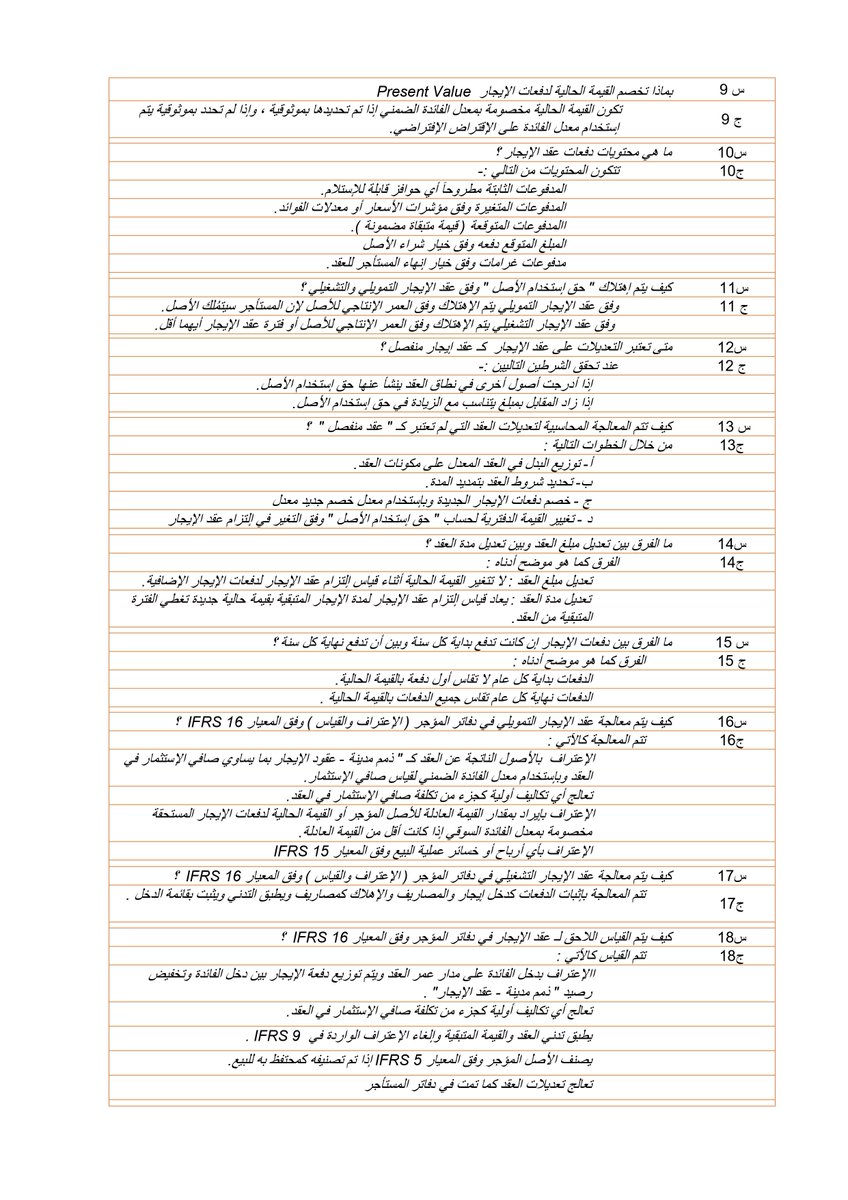 س 9 بماذا تخصم القيمة الحالية لدفعات الإيجار Present Value
ج 9 تكون القيمة الحالية مخصومة بمعدل الفائدة الضمني إذا تم تحديدها بموثوقية ، وإذا لم تحدد بموثوقية يتم
إستخدام معدل الفائدة على الإقتراض الإفتراضي.
س10 ما هي محتويات دفعات عقد الإيجار ؟
ج10 تتكون المحتويات من التالي :-
المدفوعات الثابتة مطروحاً أي حوافز قابلة للإستلام.
المدفوعات المتغيرة وفق مؤشرات الأسعار أو معدلات الفوائد.
االمدفوعات المتوقعة ( قيمة متبقاة مضمونة ).
المبلغ المتوقع دفعه وفق خيار شراء الأصل
مدفوعات غرامات وفق خيار إنهاء المستأجر للعقد.
س11 كيف يتم إهتلاك " حق إستخدام الأصل " وفق عقد الإيجار التمويلي والتشغيلي ؟
ج 11 وفق عقد الإيجار التمويلي يتم الإهتلاك وفق العمر الإنتاجي للأصل لإن المستأجر سيتمُلك الأصل.
وفق عقد الإيجار التشغيلي يتم الإهتلاك وفق العمر الإنتاجي للأصل أو فترة عقد الإيجار أيهما أقل.
س12 متى تعتبر التعديلات على عقد الإيجار كـ عقد إيجار منفصل ؟
ج 12 عند تحقق الشرطين التاليين :-
إذا أدرجت أصول أخرى في نطاق العقد ينشأ عنها حق إستخدام الأصل.
إذا زاد المقابل بمبلغ يتناسب مع الزيادة في حق إستخدام الأصل.
س 13 كيف تتم المعالجة المحاسبية لتعديلات العقد التي لم تعتبر كـ " عقد منفصل " ؟
ج13 من خلال الخطوات التالية :
أ- توزيع البدل في العقد المعدل على مكونات العقد.
ب- تحديد شروط العقد بتمديد المدة.
ج - خصم دفعات الإيجار الجديدة وبإستخدام معدل خصم جديد معدل
د - تغيير القيمة الدفترية لحساب " حق إستخدام الأصل " وفق التغير في إلتزام عقد الإيجار
س14 ما الفرق بين تعديل مبلغ العقد وبين تعديل مدة العقد ؟
ج14 الفرق كما هو موضح أدناه :
تعديل مبلغ العقد : لا تتغير القيمة الحالية أثناء قياس إلتزام عقد الإيجار لدفعات الإيجار الإضافية.
تعديل مدة العقد : يعاد قياس إلتزام عقد الإيجار لمدة الإيجار المتبقية بقيمة حالية جديدة تغطي الفترة
المتبقية من العقد.
س 15 ما الفرق بين دفعات الإيجار إن كانت تدفع بداية كل سنة وبين أن تدفع نهاية كل سنة ؟
ج 15 الفرق كما هو موضح أدناه :
الدفعات بداية كل عام لا تقاس أول دفعة بالقيمة الحالية.
الدفعات نهاية كل عام تقاس جميع الدفعات بالقيمة الحالية .
س16 كيف يتم معالجة عقد الإيجار التمويلي في دفاتر المؤجر ( الإعتراف والقياس ) وفق المعيار IFRS 16 ؟
ج16 تتم المعالجة كالأتي :
الإعتراف بالأصول الناتجة عن العقد كـ " ذمم مدينة - عقود الإيجار بما يساوي صافي الإستثمار في
العقد وبإستخدام معدل الفائدة الضمني لقياس صافي الإستثمار.
تعالج أي تكاليف أولية كجزء من تكلفة صافي الإستثمار في العقد.
الإعتراف بإيراد بمقدار القيمة العادلة للأصل المؤجر أو القيمة الحالية لدفعات الإيجار المستحقة
مخصومة بمعدل الفائدة السوقي إذا كانت أقل من القيمة العادلة.
الإعتراف بأي أرباح أو خسائر عملية البيع وفق المعيار IFRS 15
س17 كيف يتم معالجة عقد الإيجار التشغيلي في دفاتر المؤجر ( الإعتراف والقياس ) وفق المعيار IFRS 16 ؟
ج17 تتم المعالجة بإثبات الدفعات كدخل إيجار والمصاريف والإهلاك كمصاريف ويطبق التدني ويثبت بقائمة الدخل .
س18 كيف يتم القياس اللاحق لـ عقد الإيجار في دفاتر المؤجر وفق المعيار IFRS 16 ؟
ج18 تتم القياس كالأتي :
االإعتراف بدخل الفائدة على مدار عمر العقد ويتم توزيع دفعة الإيجار بين دخل الفائدة وتخفيض
رصيد " ذمم مدينة - عقد الإيجار" .
تعالج أي تكاليف أولية كجزء من تكلفة صافي الإستثمار في العقد.
يطبق تدني العقد والقيمة المتبقية وإلغاء الإعتراف الواردة في IFRS 9 .
يصنف الأصل المؤجر وفق المعيار IFRS 5 إذا تم تصنيفه كمحتفظ به للبيع.
تعالج تعديلات العقد كما تمت في دفاتر المستأجر